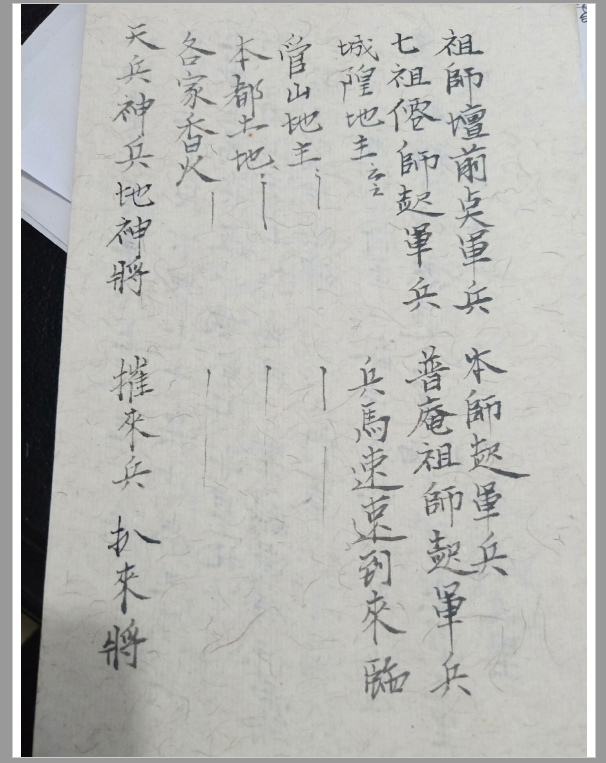 祖師壇前点軍兵 本師起軍兵
七祖僊師起軍兵 普庵祖師起軍兵
城隍地主 兵馬速速到來臨
管山地主
本都土地
各家香火
天兵神兵地神將 摧來兵 扒來將